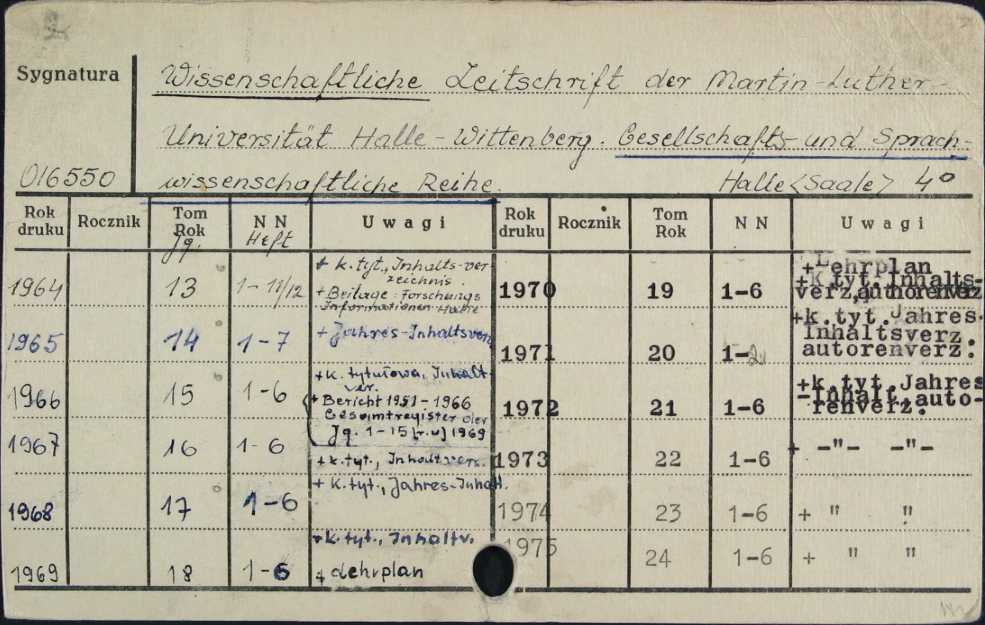 Sygnatura
Wissenschaftliche Zeitschrift der Martin-Luther-
Universität Halle-Wittenberg. Gesellschafts- und Sprach-
016550 wissenschaftliche Reihe. Halle <Saale> 4°
Rok druku Rocznik Tom Rok Jg. N N Heft Uwagi Rok druku Rocznik Tom Rok N N Uwagi
1964 13 1-11/12 + k.tyt., Inhalts-ver-
zeichnis.
+ Beilage: Forschungs
Informationen Halle
1965 14 1-7 + Jahres-Inhaltsverz
1966 15 1-6 + k. tytułowa, Inhalt-
ver.
+ Bericht 1951-1966
Gesamtregister der
Jg. 1-15 [r.w] 1969
1967 16 1-6 + k.tyt., Inhaltverz.
1968 17 1-6 + k.tyt., Jahres-Inhalt.
1969 18 1-6 + k.tyt., Inhaltv.
+ Lehrplan
1970 19 1-6 + Lehrplan
+k.tyt. Inhalts-
verz, autorenverz
1971 20 1-2 +k.tyt. Jahres-
Inhaltsverz.
autorenverz.
1972 21 1-6 +k.tyt. Jahres
-Inhalt, auto-
renverz.
1973 22 1-6 + -"- -"-
1974 23 1-6 + " "
1975 24 1-6 + " "